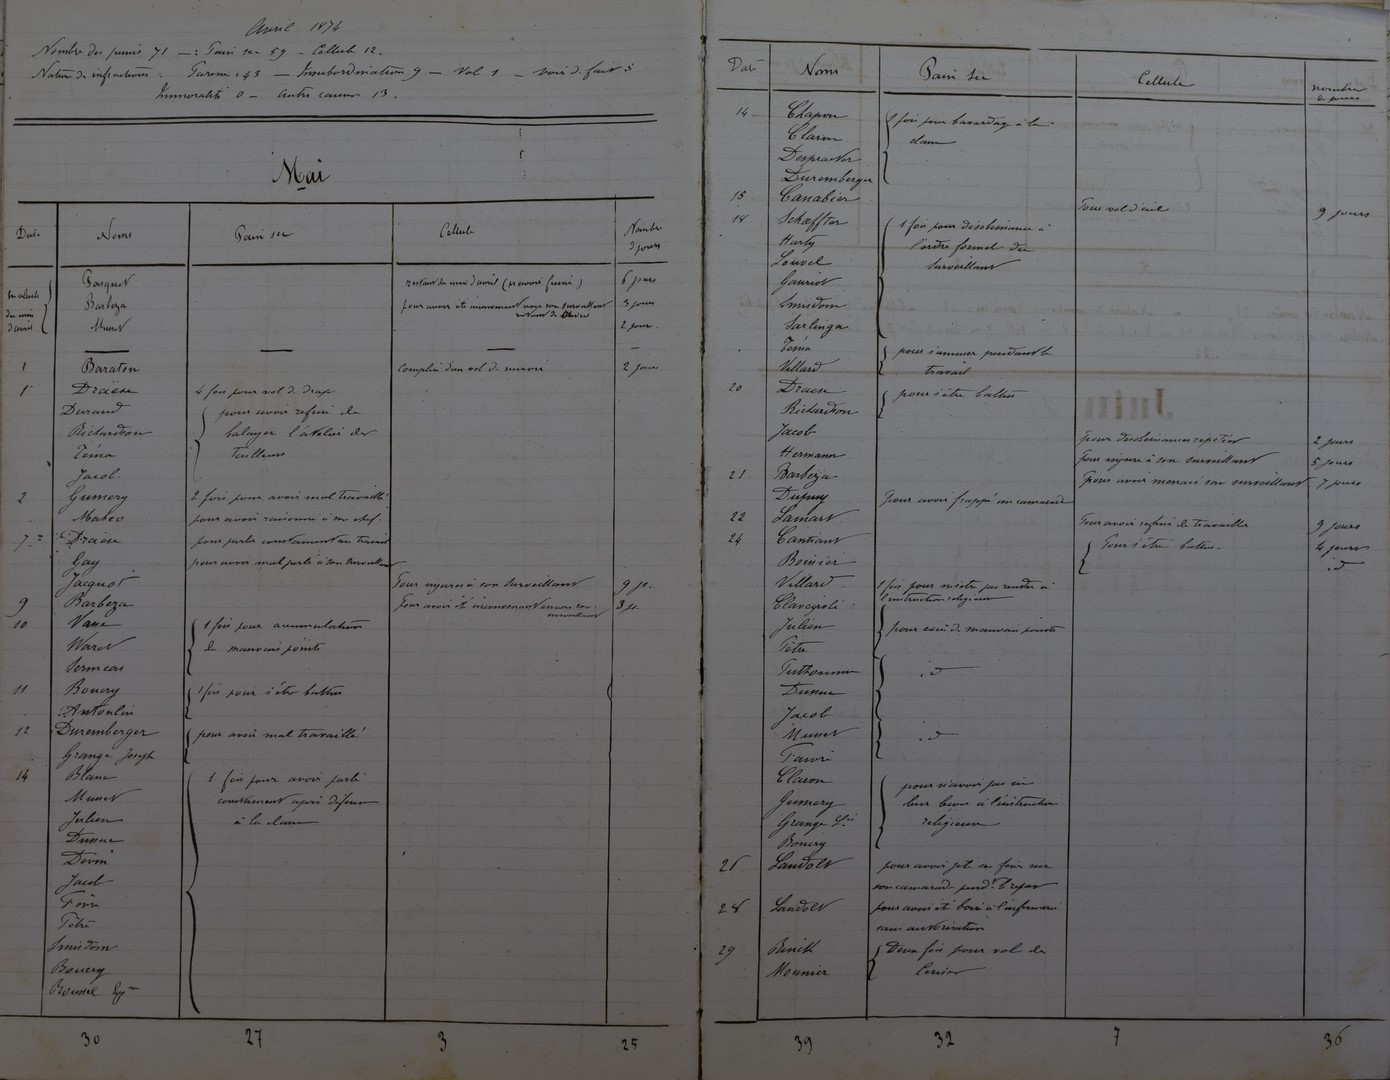 Avril 1874
Nombre des punis 71 — : Pain sec 59 - Cellule 12.
Nature des infractions : Paresse : 43 — Insubordination 9 — Vol 1 — voie de fait 5
Immoralité 0 — autre causes 13.
Mai
Date Noms Pain sec Cellule Nombre de jours
En cellule du mois d'avril
Basquet restant du mois d'avril (pr avoir fumé) 6 jours
Barbeza pour avoir été inconvenant envers son surveillant 3 jours
Muset 2 jours
1 Baraton complice d'un vol de miroir 2 jours
1 Draesse 4 fois pour vol de drap
Durand pour avoir refusé de
Richardson balayer l'atelier des
Téma tailleurs
Jacob
2 Gumery 2 fois pour avoir mal travaillé
Mateo pour avoir raisonné à son chef.
7 Draesse pour parler constamment au travail
Gay pour avoir mal parlé à son surveillant
Jacquot Pour injures à son surveillant 9 js.
9 Barbeza Pour avoir été inconvenant envers son surveillant 3 js.
10 Vasse 1 fois pour accumulation
Waret de mauvais points
Sermeas
11 Bouery 1 fois pour s'être battus
Antoulin
12 Duremberger pour avoir mal travaillé
Grange Joseph
14 Blanc 1 fois pour avoir parlé
Muset constamment après défense
Julien à la classe
Dusuc
Devin
Jacob
Favre
Têtre
Smisdom
Bouery
Roussel
30 27 3 25
Date Noms Pain sec Cellule nombre de jours
14 Chapon 1 fois pour bavardage à la
Claron classe
Despractor
Duremberger
15 Canabier Pour vol d'ail 9 jours
18 Schaffter 1 fois pour désobéissance à
Harty l'ordre formel du
Louvel surveillant
Gauriot
Smisdom
Sarlinga
Téma pour s'amuser pendant le
Villard travail
20 Draesse pour s'être battus
Richardson
Jacob pour désobéissances répétées 2 jours
Hermann Pour injure à son surveillant 5 jours
21 Barbeza Pour avoir menacé son surveillant 7 jours
Dupuy Pour avoir frappé un camarade
22 Lamart Pour avoir refusé de travailler 9 jours
24 Cantiant Pour s'être battus 4 jours
Boinier id
Villard 1 fois pour n'être pas rendu à
l'instruction religieuse
Clavesioli
Julien pour excès de mauvais points
Têtre
Prethomme id
Dusuc
Jacob
Muset id
Favre
Claron pour n'avoir pas su
Gumery leur leçon à l'instruction
Grange religieuse
Bouery
26 Landolt pour avoir jeté sa fois sur
son camarade pendt le repas
28 Landolt pour avoir été boire à l'infirmerie
sans autorisation
29 Binik Deux fois pour vol de
Mounier cerises
39 32 7 36